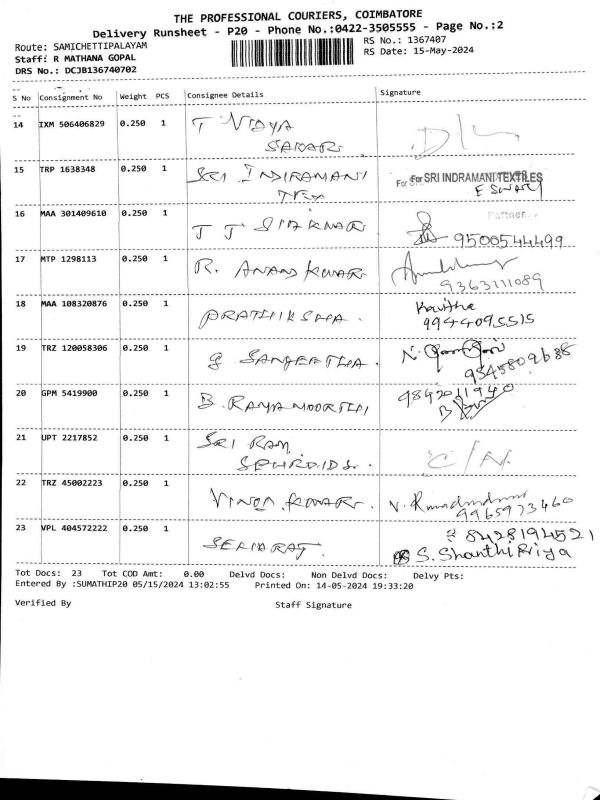 THE PROFESSIONAL COURIERS, COIMBATORE
Delivery Runsheet - P20 - Phone No.:0422-3505555 - Page No.:2
Route: SAMICHETTIPALAYAM RS No.: 1367407
Staff: R MATHANA GOPAL RS Date: 15-May-2024
DRS No.: DCJB136740702
S No Consignment No Weight PCS Consignee Details Signature
14 IXM 506406829 0.250 1 T VIDYA
15 TRP 1638348 0.250 1 SRI INDIRAMANI For SRI INDRAMANI TEXTILES
TEX ESWARI
Partner
16 MAA 301409610 0.250 1 T T 9500544499
17 MTP 1298113 0.250 1 R. ANAND KUMAR
9363111089
18 MAA 108320876 0.250 1 PRATHIKSHA. Kavitha
9944095515
19 TRZ 120058306 0.250 1 G SANGEETHA. N.
9545809688
20 GPM 5419900 0.250 1 B. RAMAMOORTHI 9842011940
21 UPT 2217852 0.250 1 SRI RAM C/N.
22 TRZ 45002223 0.250 1 VINOD KUMAR. V.
9965973460
23 VPL 404572222 0.250 1 8428194521
S. Shanthi Priya
Tot Docs: 23 Tot COD Amt: 0.00 Delvd Docs: Non Delvd Docs: Delvy Pts:
Entered By :SUMATHIP20 05/15/2024 13:02:55 Printed On: 14-05-2024 19:33:20
Verified By Staff Signature